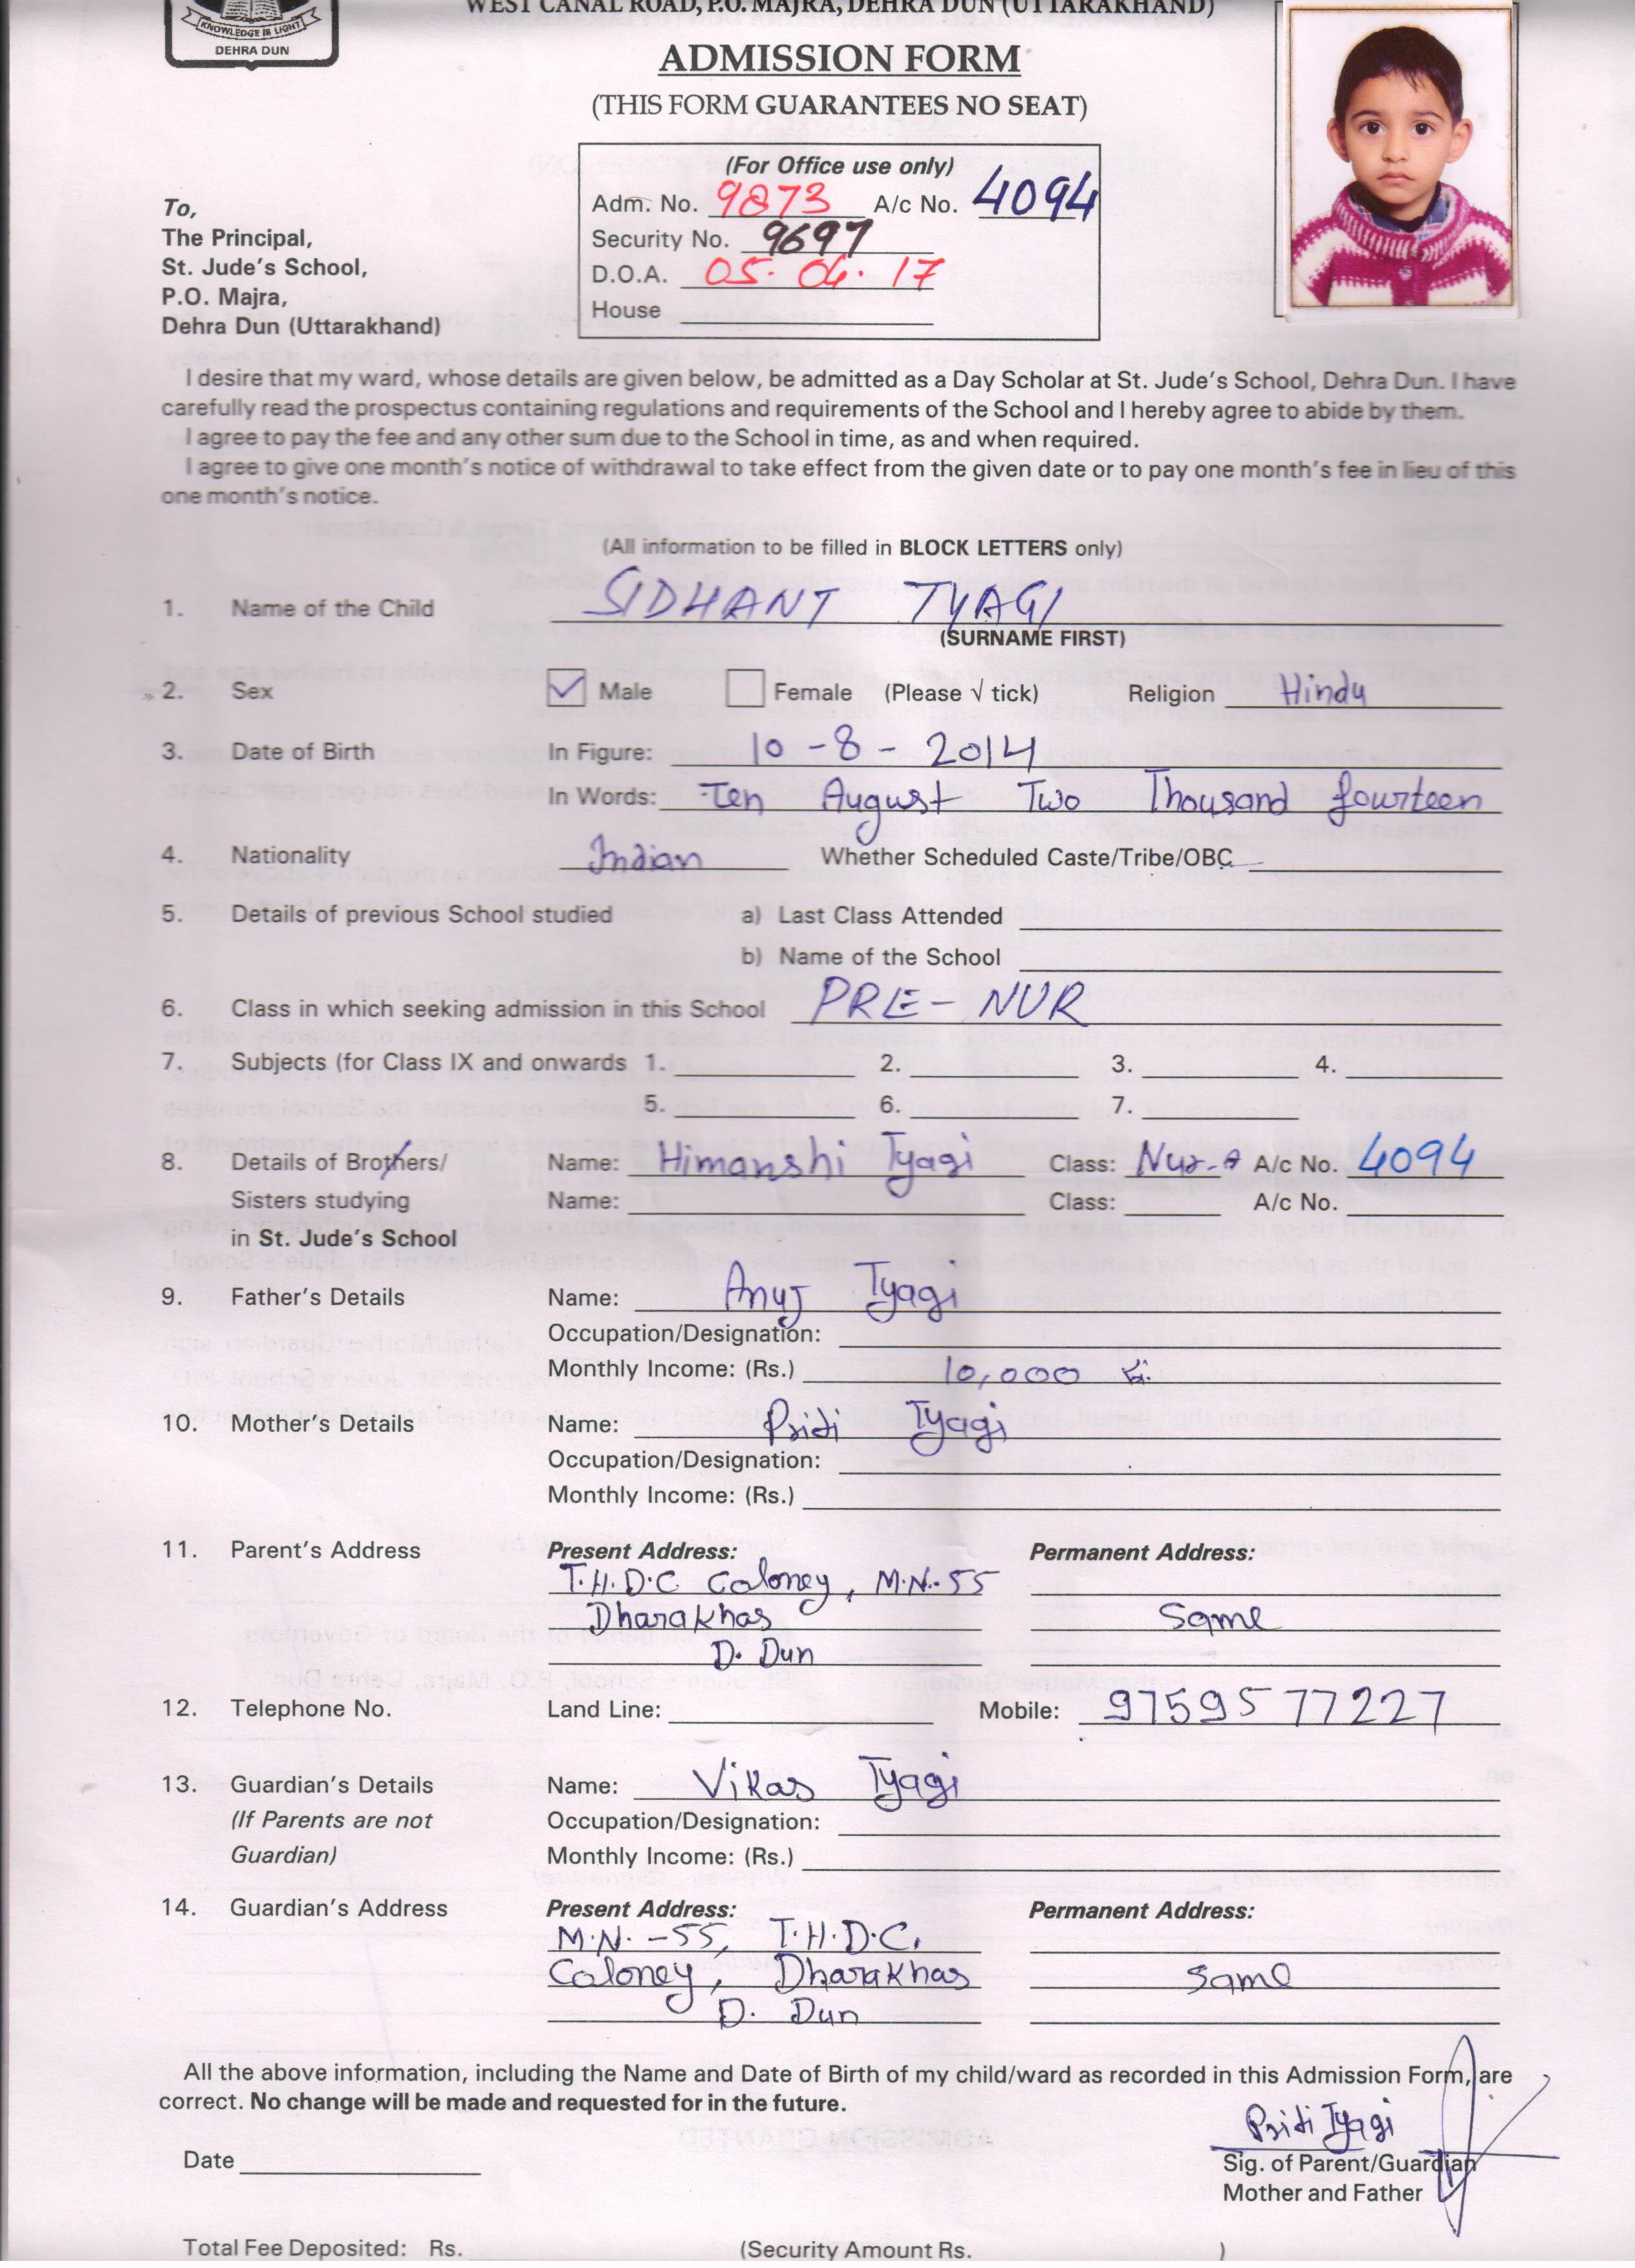 WEST CANAL ROAD, P.O. MAJRA, DEHRA DUN (UTTARAKHAND)
KNOWLEDGE IS LIGHT
DEHRA DUN
ADMISSION FORM
(THIS FORM GUARANTEES NO SEAT)
(For Office use only)
Adm. No. 9873 A/c No. 4094
Security No. 9697
D.O.A. 05.04.17
House
To,
The Principal,
St. Jude's School,
P.O. Majra,
Dehra Dun (Uttarakhand)
I desire that my ward, whose details are given below, be admitted as a Day Scholar at St. Jude's School, Dehra Dun. I have
carefully read the prospectus containing regulations and requirements of the School and I hereby agree to abide by them.
I agree to pay the fee and any other sum due to the School in time, as and when required.
I agree to give one month's notice of withdrawal to take effect from the given date or to pay one month's fee in lieu of this
one month's notice.
(All information to be filled in BLOCK LETTERS only)
1. Name of the Child SIDHANT TYAGI
(SURNAME FIRST)
2. Sex Male Female (Please √ tick) Religion Hindu
3. Date of Birth In Figure: 10-8-2014
In Words: Ten August Two Thousand fourteen
4. Nationality Indian Whether Scheduled Caste/Tribe/OBC
5. Details of previous School studied a) Last Class Attended
b) Name of the School
6. Class in which seeking admission in this School PRE-NUR
7. Subjects (for Class IX and onwards 1. 2. 3. 4.
5. 6. 7.
8. Details of Brothers/ Name: Himanshi Tyagi Class: Nur-A A/c No. 4094
Sisters studying Name: Class: A/c No.
in St. Jude's School
9. Father's Details Name: Anuj Tyagi
Occupation/Designation:
Monthly Income: (Rs.) 10,000
10. Mother's Details Name: Priti Tyagi
Occupation/Designation:
Monthly Income: (Rs.)
11. Parent's Address Present Address: Permanent Address:
T.H.D.C Coloney, M.N.-55
Dharakhas Same
D. Dun
12. Telephone No. Land Line: Mobile: 9759577227
13. Guardian's Details Name: Vikas Tyagi
(If Parents are not Occupation/Designation:
Guardian) Monthly Income: (Rs.)
14. Guardian's Address Present Address: Permanent Address:
M.N.-55, T.H.D.C.
Coloney, Dharakhas Same
D. Dun
All the above information, including the Name and Date of Birth of my child/ward as recorded in this Admission Form, are
correct. No change will be made and requested for in the future.
Priti Tyagi
Date Sig. of Parent/Guardian
Mother and Father
Total Fee Deposited: Rs. (Security Amount Rs. )